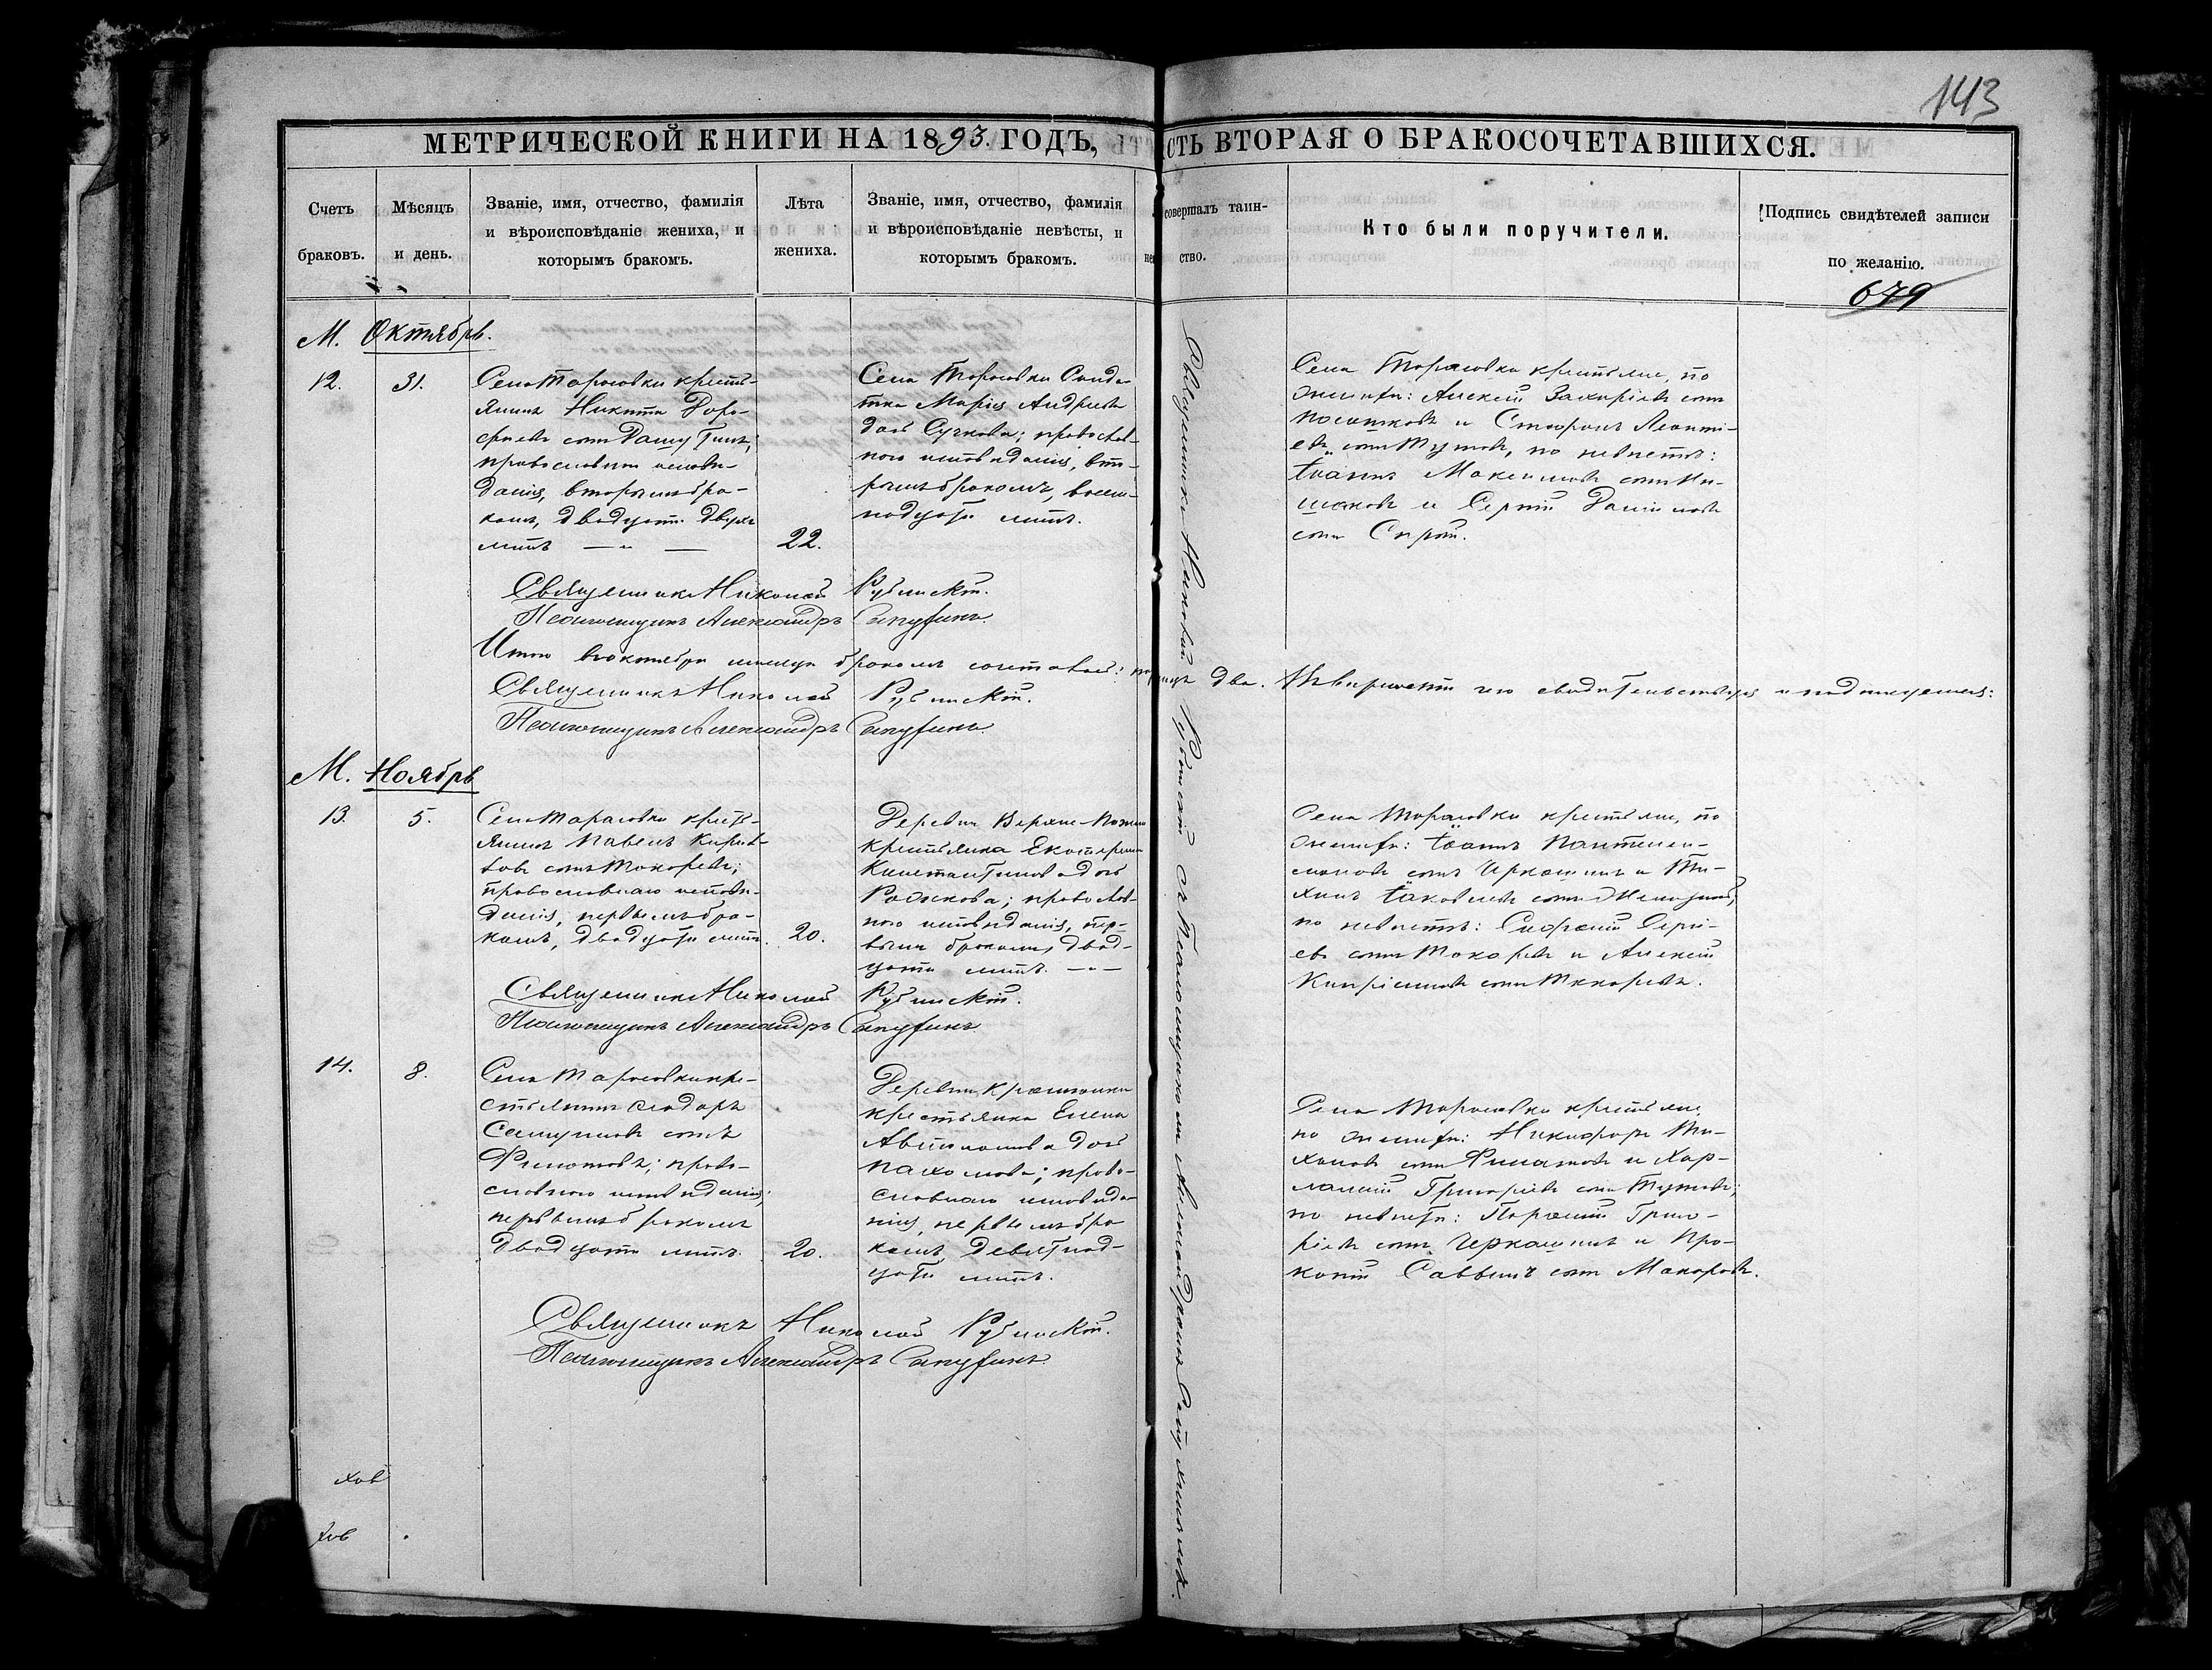 143
МЕТРИЧЕСКОЙ КНИГИ НА 1893. ГОДЪ,
СТЬ ВТОРАЯ О БРАКОСОЧЕТАВШИХСЯ.
Счетъ браковъ.
Мѣсяцъ и день.
Званіе, имя, отчество, фамилія
и вѣроисповѣданіе жениха, и
которымъ бракомъ.
Лѣта жениха.
Званіе, имя, отчество, фамилія
и вѣроисповѣданіе невѣсты, и
которымъ бракомъ.
совершалъ таин-
ство.
Кто были поручители.
Подпись свидѣтелей записи
по желанію.
679
М. Октябрь.
12.
31.
Села Тарасовки кресть-
янинъ Никита Доро-
феевъ сынъ
православнаго исповѣ-
данія, вторымъ бра-
комъ, двадцати двухъ
лѣтъ — „ —
22.
Села Тарасовки Солда-
тка Марія Андреева
дочь Сучкова; православ-
наго исповѣданія, вто-
рымъ бракомъ, восем-
надцати лѣтъ.
Села Тарасовки крестьяне, по
женихѣ: Алексій Захаріевъ сынъ
и Стефанъ Леонті-
евъ сынъ Тутовъ, по невѣстѣ:
Іоаннъ Максимовъ сынъ
и Сергій Даніиловъ
сынъ
Священникъ Николай
Псаломщикъ Александръ
Итого въ октябрѣ мѣсяцѣ бракомъ сочетались: паръ два. Въ вѣрности чего свидѣтельствуемъ и подписуемся:
Священникъ Николай
Псаломщикъ Александръ
М. Ноябрь
13.
5.
Села Тарасовки кресть-
янинъ Павелъ
сынъ Токаревъ;
православнаго исповѣ-
данія, первымъ бра-
комъ, двадцати лѣтъ.
20.
Деревни Верхне-
крестьянка Екатерина
Константинова дочь
Рожкова; православ-
наго исповѣданія, пер-
вымъ бракомъ, двад-
цати лѣтъ. — „ —
Села Тарасовки крестьяне, по
женихѣ: Іоаннъ Пантелеи-
моновъ сынъ Черкашинъ и Ти-
хонъ Іаковлевъ сынъ
по невѣстѣ: Сергі-
евъ сынъ Токаревъ и Алексій
Кипріановъ сынъ Токаревъ.
Священникъ Николай
Псаломщикъ Александръ
14.
8.
Села Тарасовки кре-
стьянинъ Ѳеодоръ
Самуиловъ сынъ
Филатовъ; право-
славнаго исповѣданія;
первымъ бракомъ
двадцати лѣтъ.
20.
Деревни
крестьянка Елена
дочь
Пахомова; право-
славнаго исповѣда-
нія, первымъ бра-
комъ, девятнад-
цати лѣтъ.
Села Тарасовки крестьяне,
по женихѣ: Никифоръ Ти-
хоновъ сынъ Филатовъ и Хар-
лампій Григоріевъ сынъ Тутовъ;
по невѣстѣ: Григо-
ріевъ сынъ Черкашинъ и Про-
копій Саввинъ сынъ Макаровъ.
Священникъ Николай
Псаломщикъ Александръ
Священникъ Николай съ Псаломщикомъ Александромъ